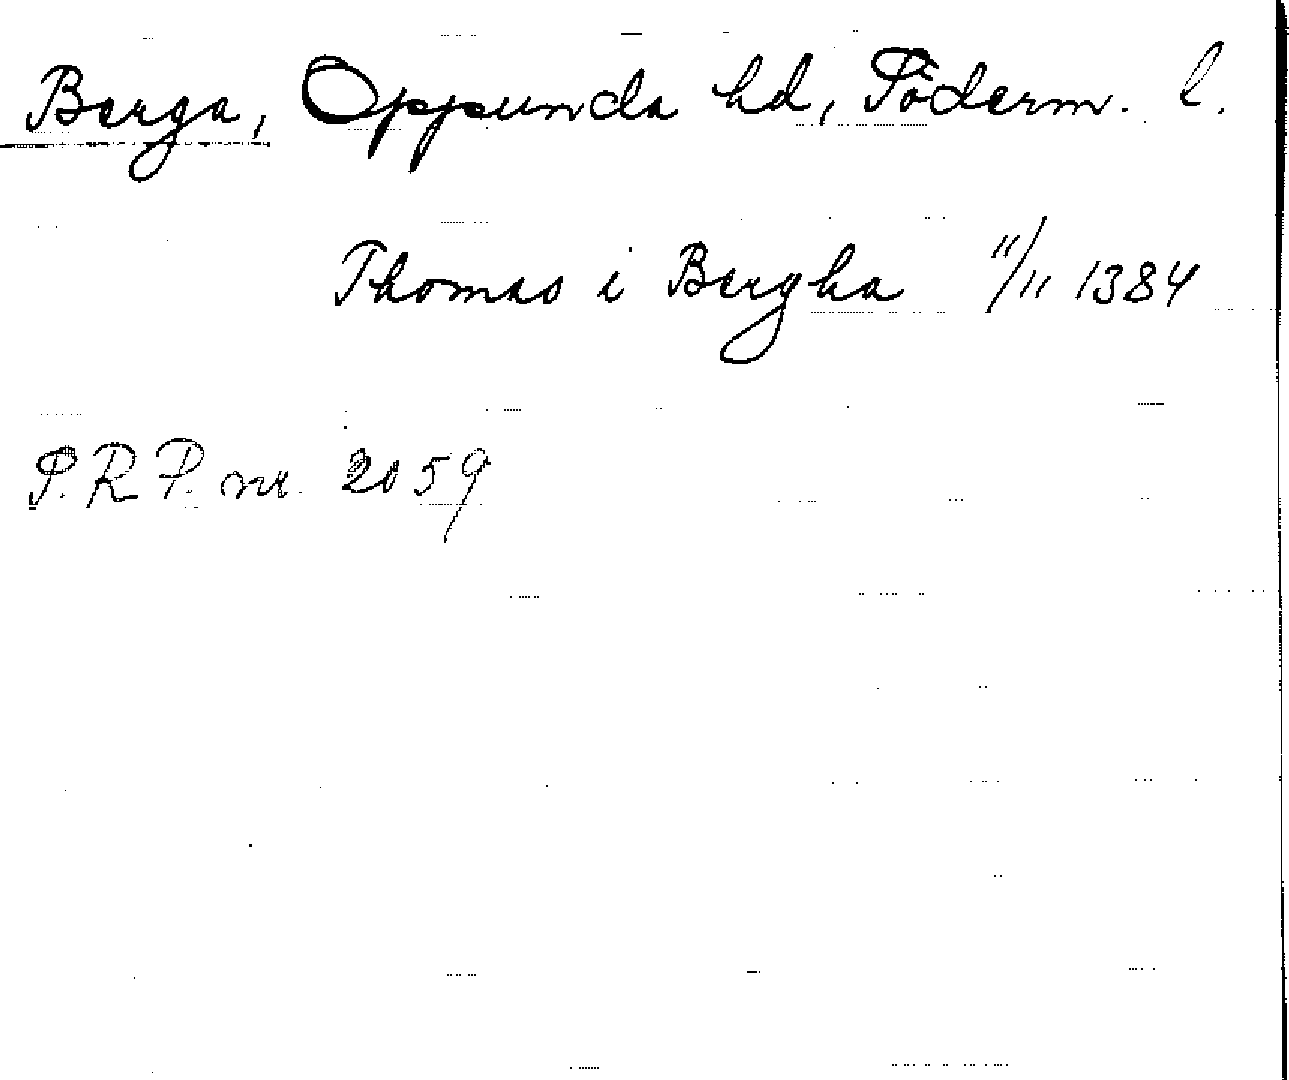 Berga, Oppunda hd, Söderm. l.
Thomas i Bergha 11/11 1384
S.R.P. nr. 2059